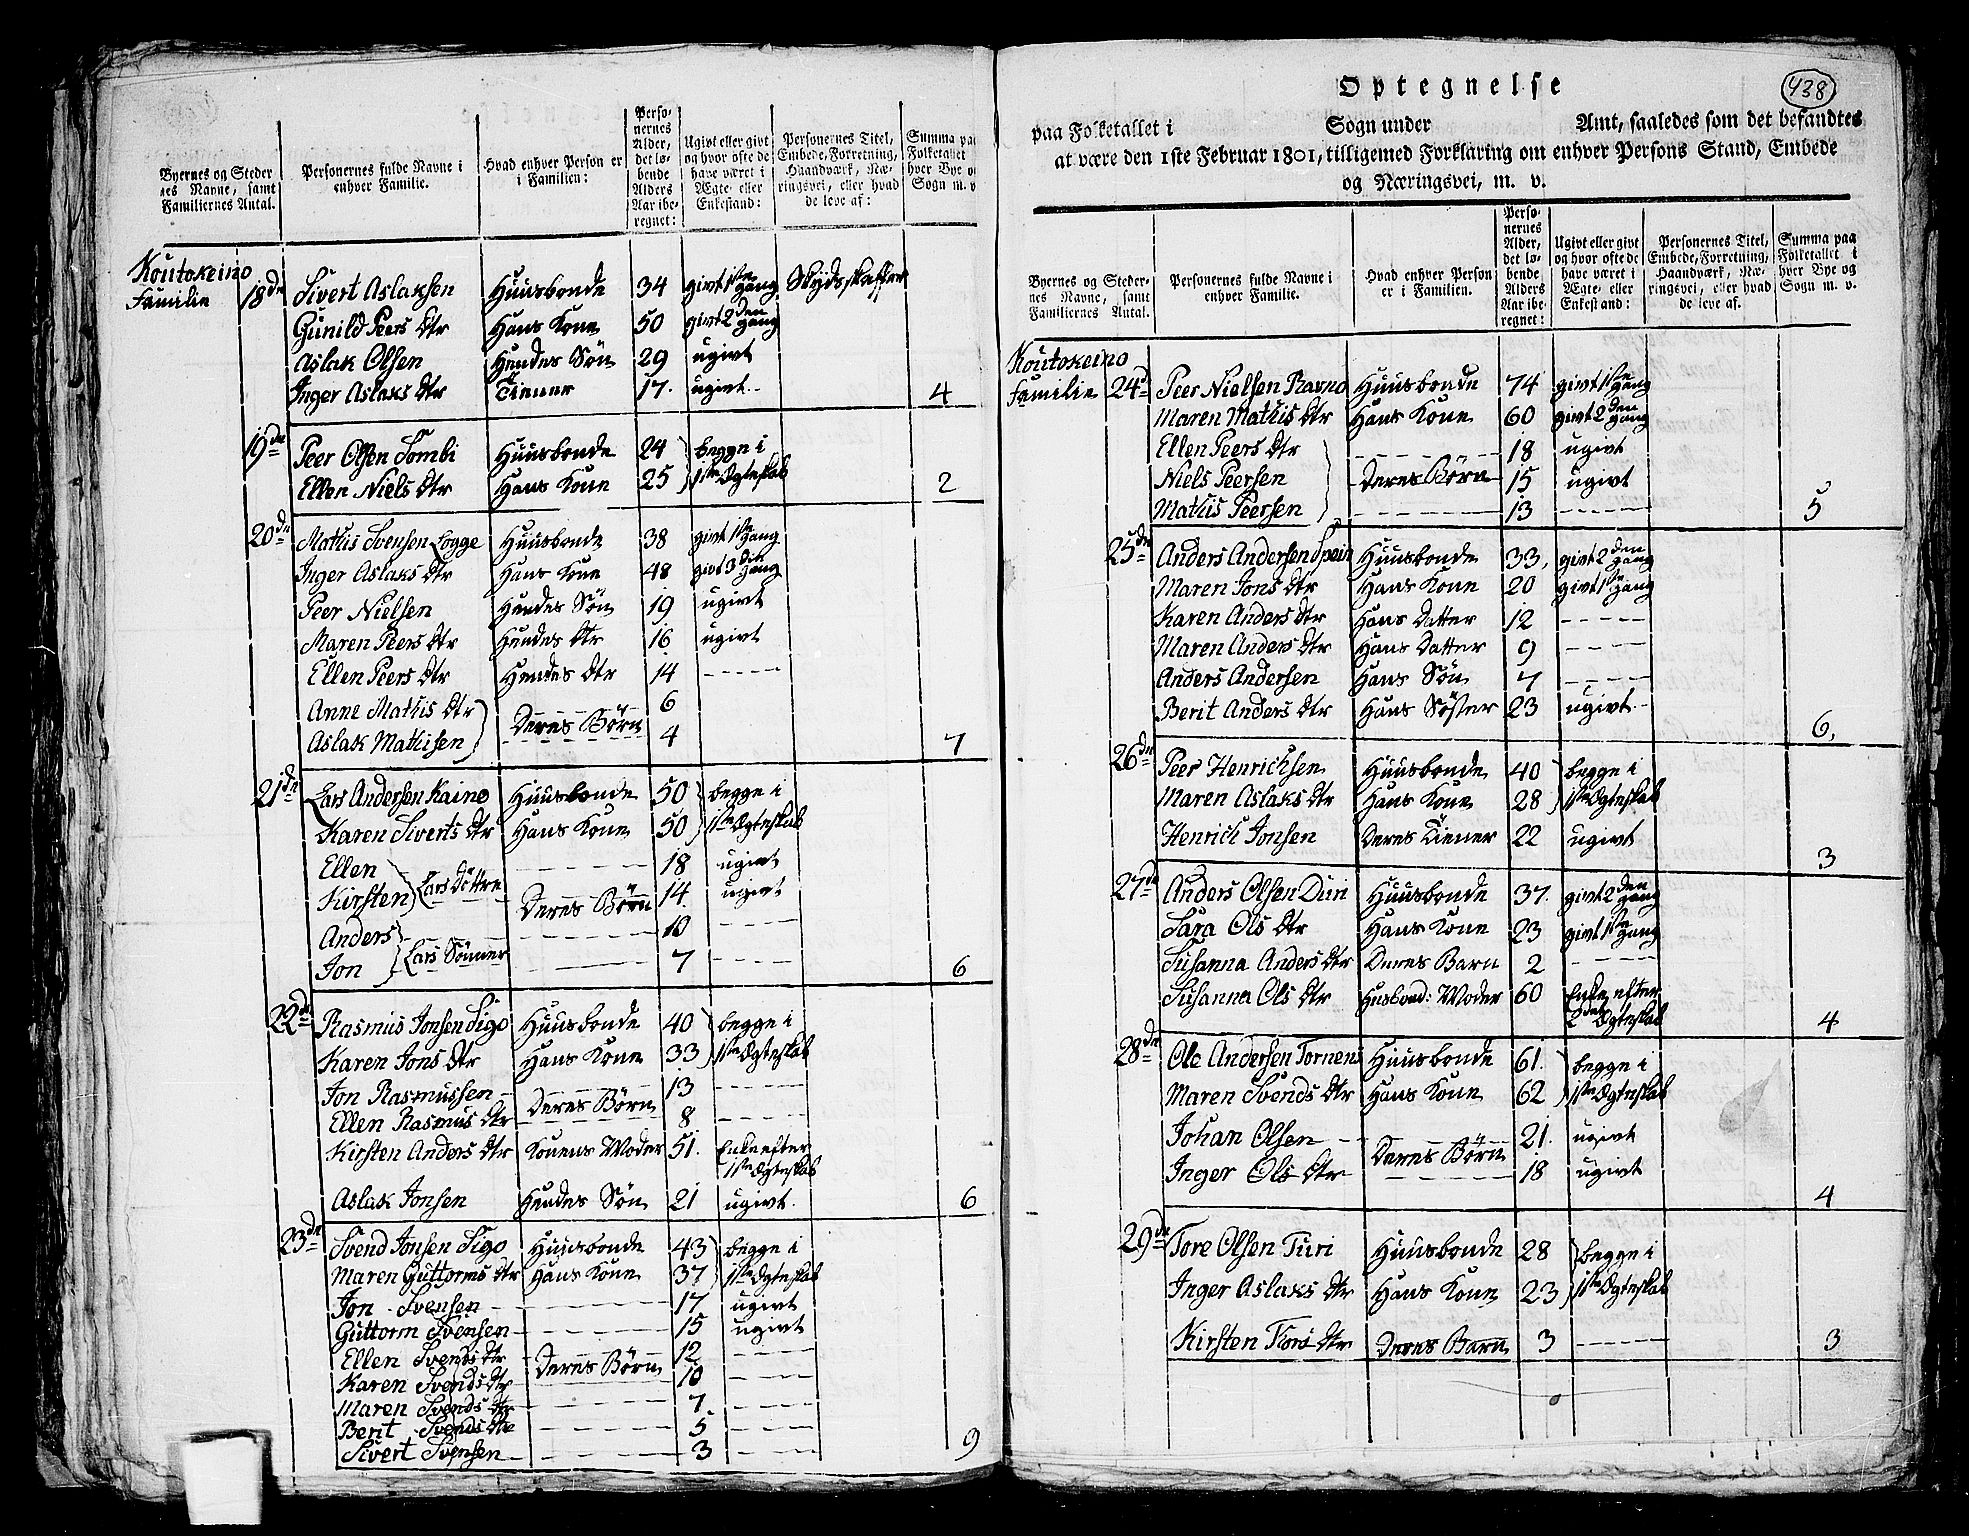 Byernes og Steder nes Navne, samt Familiernes Antal.
Personernes fulde Navne i enhver Familie.
Hvad enhver Person er i Familien:
Perso-nernes Alder, det lø-bende Alders Aar ibe-regnet:
Ugivt eller givt og hvor ofte de have været i Ægte- eller Enkestand:
Personernes Titel, Embede, Forretning, Haandværk, Næ-ringsvei, eller hvad de leve af:
Summa paa Folketallet hver Bye o Sogn m. v
Koutokeino
Familie 18de Sivert Aslaksen Huusbonde 34 givt 1ste Gang Skydsskaffer
Gunild Peers Dtr Hans Kone 50 givt 2den Gang
Aslak Olsen Hendes Søn 29 ugivt
Inger Aslaks Dtr Tiener 17. ugivt 4
19de Peer Olsen Sombi Huusbonde 24 begge i
Ellen Niels Dtr Hans Kone 25 1ste Ægteskab 2
20de Mathis Svensen Logge Huusbonde 38 givt 1ste Gang
Inger Aslaks Dtr Hans Kone 48 givt 3de Gang
Peer Nielsen Hendes Søn 19 ugivt
Maren Peers Dtr Hendes Dtr 16 ugivt
Ellen Peers Dtr Hendes Dtr 14 -----
Anne Mathis Dtr 6
Aslak Mathisen Deres Börn 4 7
21de Lars Andersen Kaino Huusbonde 50 begge i
Karen Siverts Dtr Hans Kone 50 1ste Ægteskab
Ellen 18 ugivt
Kirsten Lars Döttre Deres Börn 14 ugivt
Anders 10 -----
Jon Lars Sönner 7 ----- 6
22de Rasmus Jonsen Sigo Huusbonde 40 begge i
Karen Jons Dtr Hans Kone 33 1ste Ægteskab
Jon Rasmussen 13 -----
Ellen Rasmus Dtr Deres Börn 8 -----
Kirsten Anders Dtr Konens Moder 51. Enke efter
1ste Ægteskab
Aslak Jonsen Hendes Søn 21 ugivt. 6
23de Svend Jonsen Sigo Huusbonde 43 begge i
Maren Guttorms Dtr Hans Kone 37 1ste Ægteskab
Jon Svensen 17 ugivt
Guttorm Svensen 15 ugivt
Ellen Svends Dtr Deres Börn 12 -----
Karen Svends Dtr 10 -----
Maren Svends Dtr 7 -----
Berit Svends Dtr 5 -----
Sivert Svensen 3 ----- 9
438
Optegnelse
paa Folketallet i Sogn under Amt, saaledes som det befandtes
at være den 1ste Februar 1801, tilligemed Forklaring om enhver Persons Stand, Embede
og Næringsvei, m. v.
Byernes og Steder-nes Navne, samt Familiernes Antal.
Personernes fulde Navne i enhver Familie.
Hvad enhver Person er i Familien.
Perso-nernes Alder, det lø-bende Alders Aar ibe-regnet:
Ugivt eller givt og hvor ofte de have været i Ægte- eller Enkestand:
Personernes Titel, Embede, Forretning, Haandværk, Næ-ringsvei, eller hvad de leve af.
Summa paa Folketallet i hver Bye og Sogn m. v.
Koutokeino
Familie 24de Peer Nielsen Ravno Huusbonde 74 givt 1ste Gang
Maren Mathis Dtr Hans Kone 60 givt 2den Gang
Ellen Peers Dtr 18 ugivt
Niels Peersen Deres Börn 15 ugivt
Mathis Peersen 13 ----- 5
25de Anders Andersen Spein Huusbonde 33, givt 2den Gang
Maren Jons Dtr Hans Kone 20 givt 1ste Gang
Karen Anders Dtr Hans Datter 12 -----
Maren Anders Dtr Hans Datter 9 -----
Anders Andersen Hans Søn 7 -----
Berit Anders Dtr Hans Søster 23 ugivt 6,
26de Peer Henrichsen Huusbonde 40 begge i
Maren Aslaks Dtr Hans Kone 28 1ste Ægteskab
Henrich Jonsen Deres Tiener 22 ugivt 3
27de Anders Olsen Duri Huusbonde 37. givt 2den Gang
Sara Ols Dtr Hans Kone 23 givt 1ste Gang
Susanna Anders Dtr Deres Barn 2 -----
Susanna Ols Dtr Husbond: Moder 60 Enke efter
2det Ægteskab 4
28de Ole Andersen Tornens Huusbonde 61. begge i
Maren Svends Dtr Hans Kone 62 1ste Ægteskab
Johan Olsen 21. ugivt
Inger Ols Dtr Deres Börn 18 ugivt 4
29de Tore Olsen Turi Huusbonde 28 begge i
Inger Aslaks Dtr Hans Kone 23 1ste Ægteskab
Kirsten Tors Dtr Deres Barn 3 ----- 3